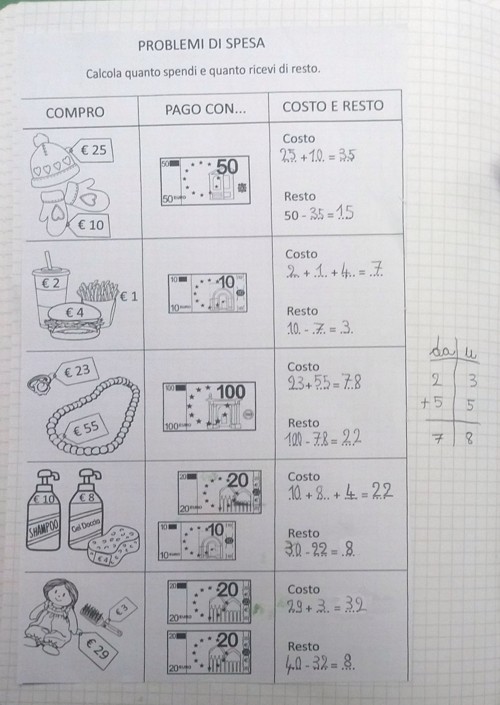 PROBLEMI DI SPESA
Calcola quanto spendi e quanto ricevi di resto.
COMPRO PAGO CON... COSTO E RESTO
€ 25
€ 10
50
50
50 EURO
Costo
25 + 10 = 35
Resto
50 - 35 = 15
€ 2
€ 1
€ 4
10
10
10 EURO
Costo
2 + 1 + 4 = 7
Resto
10 - 7 = 3
€ 23
€ 55
100
100
100 EURO
Costo
23 + 55 = 78
Resto
100 - 78 = 22
da u
2 3
+ 5 5
7 8
€ 10
€ 8
SHAMPOO
Gel Doccia
€ 4
20
20
20 EURO
10
10
10 EURO
Costo
10 + 8 + 4 = 22
Resto
30 - 22 = 8
€ 3
€ 29
20
20
20 EURO
20
20
20 EURO
Costo
29 + 3 = 32
Resto
40 - 32 = 8